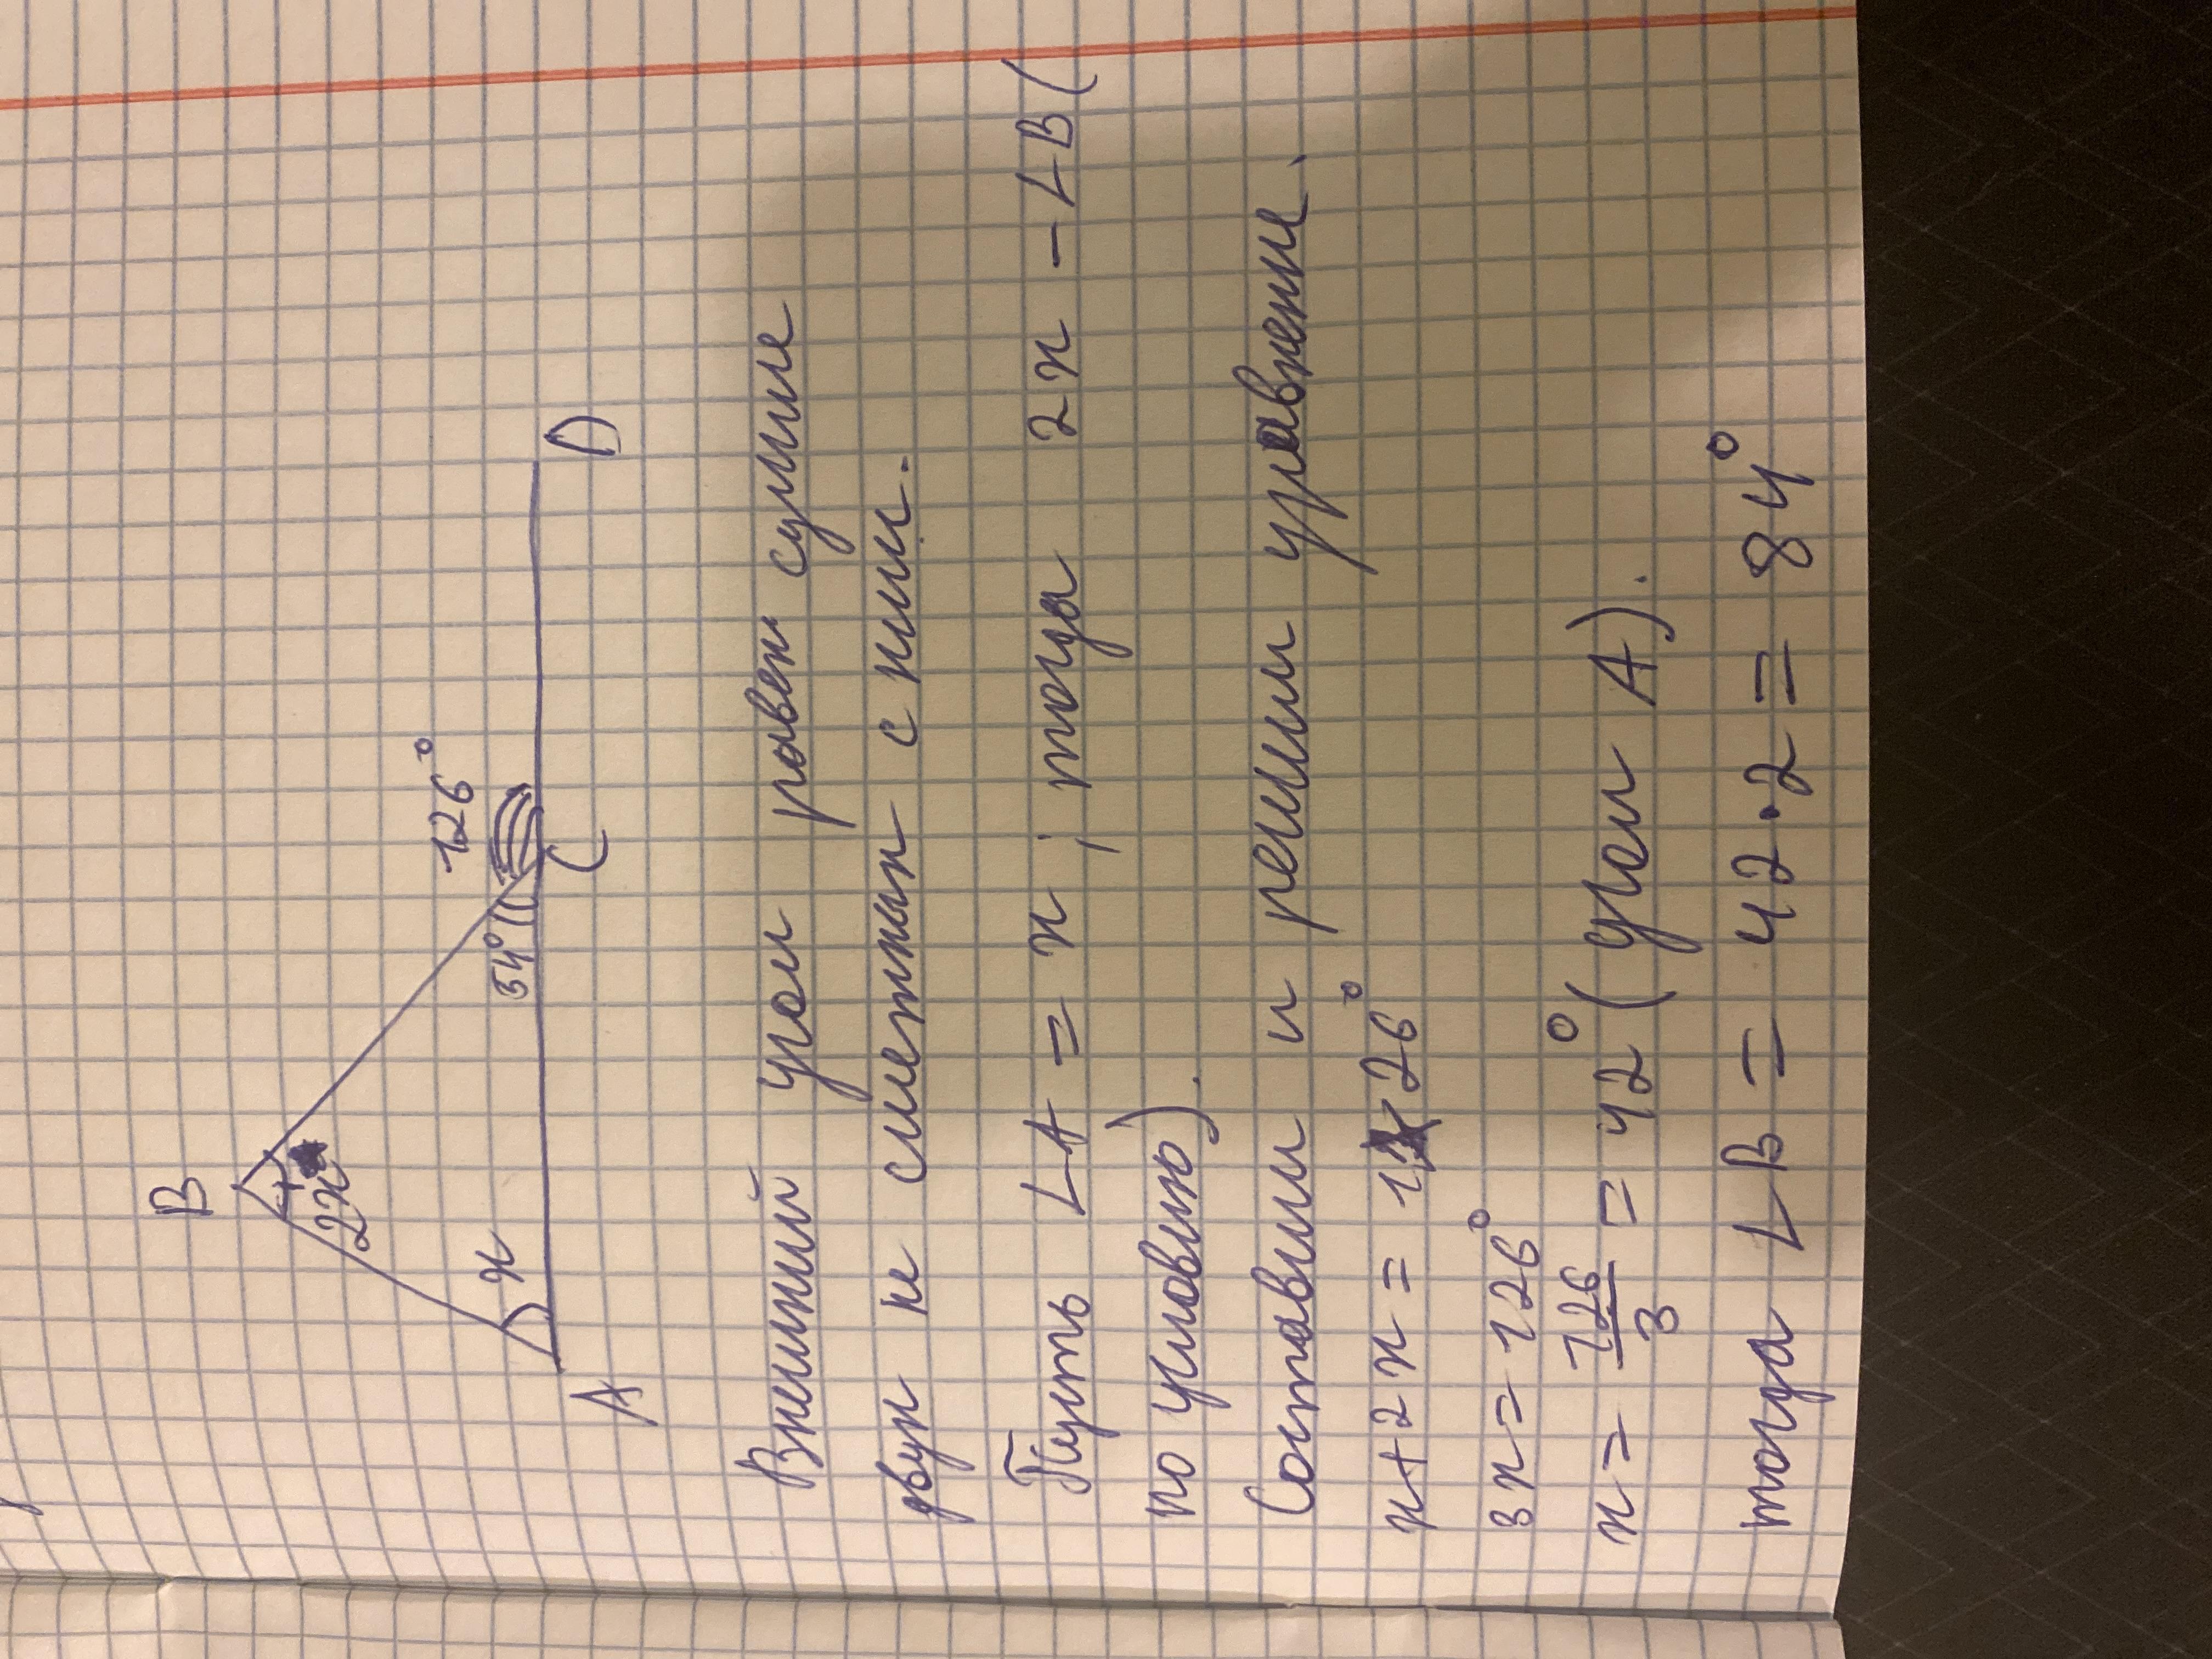 B
2x
x
54°
126°
A
C
D
Внешний угол равен сумме
двух не смежных с ним.
Пусть ∠A = x, тогда 2x - ∠B (
по условию).
Составим и решим уравнение.
x + 2x = 126°
3x = 126°
x = 126/3 = 42° (угол A).
тогда ∠B = 42·2 = 84°